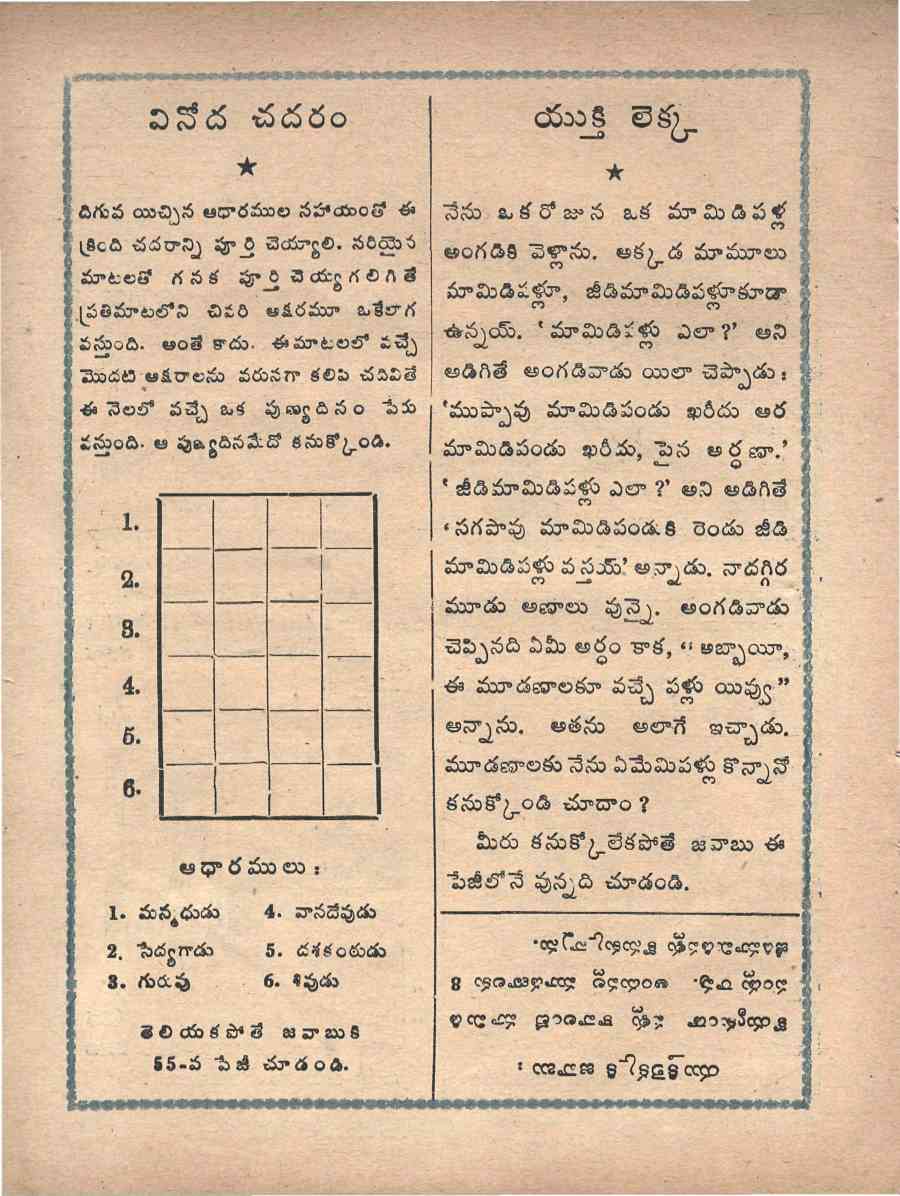 వినోద చదరం
★
దిగువ యిచ్చిన ఆధారముల సహాయంతో ఈ
క్రింది చదరాన్ని పూర్తి చెయ్యాలి. సరియైన
మాటలతో గనక పూర్తి చెయ్యగలిగితే
ప్రతిమాటలోని చివరి అక్షరమూ ఒకేలాగ
వస్తుంది. అంతే కాదు. ఈమాటలలో వచ్చే
మొదటి అక్షరాలను వరుసగా కలిపి చదివితే
ఈ నెలలో వచ్చే ఒక పుణ్యదినం పేరు
వస్తుంది. ఆ పుణ్యదినమేదో కనుక్కోండి.
1.
2.
3.
4.
5.
6.
ఆధారములు :
1. మన్మధుడు 4. వానదేవుడు
2. సేద్యగాడు 5. దశకంఠుడు
3. గురువు 6. శివుడు
తెలియకపోతే జవాబుకి
55-వ పేజీ చూడండి.
యుక్తి లెక్క
★
నేను ఒకరోజున ఒక మామిడిపళ్ల
అంగడికి వెళ్లాను. అక్కడ మామూలు
మామిడిపళ్లూ, జీడిమామిడిపళ్లూకూడా
ఉన్నయ్. ‘మామిడిపళ్లు ఎలా ?’ అని
అడిగితే అంగడివాడు యిలా చెప్పాడు :
‘ముప్పావు మామిడిపండు ఖరీదు అర
మామిడిపండు ఖరీదు, పైన అర్ధణా.’
‘జీడిమామిడిపళ్లు ఎలా ?’ అని అడిగితే
‘సగపావు మామిడిపండుకి రెండు జీడి
మామిడిపళ్లు వస్తయ్’ అన్నాడు. నాదగ్గిర
మూడు అణాలు వున్నై. అంగడివాడు
చెప్పినది ఏమీ అర్ధం కాక, “అబ్బాయీ,
ఈ మూడణాలకూ వచ్చే పళ్లు యివ్వు”
అన్నాను. అతను అలాగే ఇచ్చాడు.
మూడణాలకు నేను ఏమేమిపళ్లు కొన్నానో
కనుక్కోండి చూదాం ?
మీరు కనుక్కోలేకపోతే జవాబు ఈ
పేజీలోనే వున్నది చూడండి.
యుక్తిలెక్కకి జవాబు :